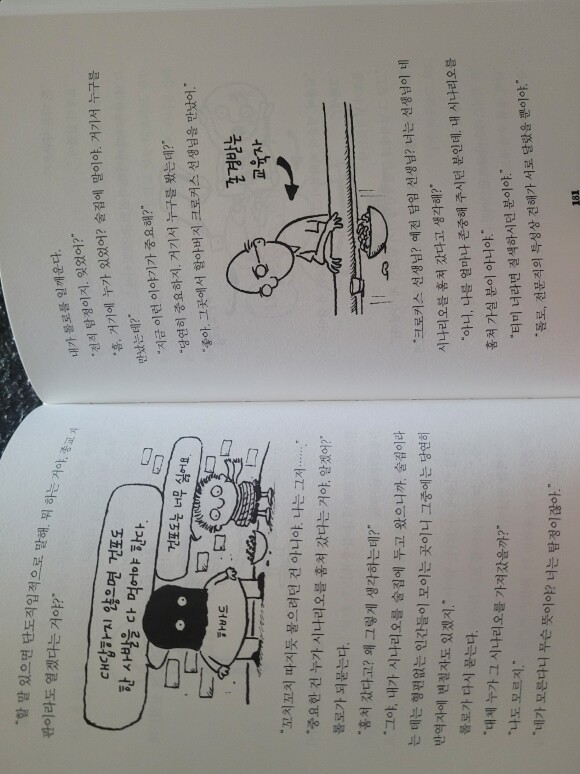 "할 말 있으면 단도직입적으로 말해. 뭐 하는 거야, 종교 재
판이라도 열겠다는 거야?"
그 사람을
건포도는 너무 싫어요.
"꼬치꼬치 따지듯 물으려던 건 아니야. 나는 그저……."
"중요한 건 누가 시나리오를 훔쳐 갔다는 거야, 알겠어?"
몰로가 되묻는다.
"훔쳐 갔다고? 왜 그렇게 생각하는데?"
"그야, 내가 시나리오를 술집에 두고 왔으니까. 술집이라
는 데는 형편없는 인간들이 모이는 곳이니 그중에는 당연히
반역자에 변절자도 있겠지."
몰로가 다시 묻는다.
"대체 누가 그 시나리오를 가져갔을까?"
"나도 모르지."
"네가 모른다니 무슨 뜻이야? 너는 탐정이잖아."
내가 몰로를 일깨운다.
"전직 탐정이지, 잊었어?"
"흠, 거기에 누가 있었어? 술집에 말이야. 거기서 누구를
만났는데?"
"지금 이런 이야기가 중요해?"
"당연히 중요하지. 거기서 누구를 봤는데?"
"좋아. 그곳에서 할아버지 크로커스 선생님을 만났어."
교육자
"크로커스 선생님? 예전 담임 선생님? 너는 선생님이 네
시나리오를 훔쳐 갔다고 생각해?"
"아니, 나를 얼마나 존중해 주시던 분인데. 내 시나리오를
훔쳐 가실 분이 아니야."
"티미 너라면 질색하시던 분이야."
"몰로, 전문직의 특성상 견해가 서로 달랐을 뿐이야."
181